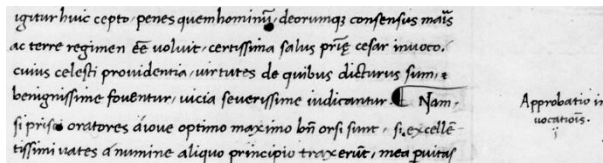 igitur huic cepto, penes quem hominū, deorumqꝫ consensus maris
ac terre regimen ēē voluit, certissima salus prīę cesar invoco.
cuius celesti providentia, virtutes de quibus dicturus sum, &
benignissime foventur, vicia severissime iudicantur. ¶ Nam,
si prisci oratores a iove optimo maximo bn̄ orsi sunt, si excellē
tissimi vates a numine aliquo principio traxerūt, mea pvitas
Approbatio in
vocatiōis.